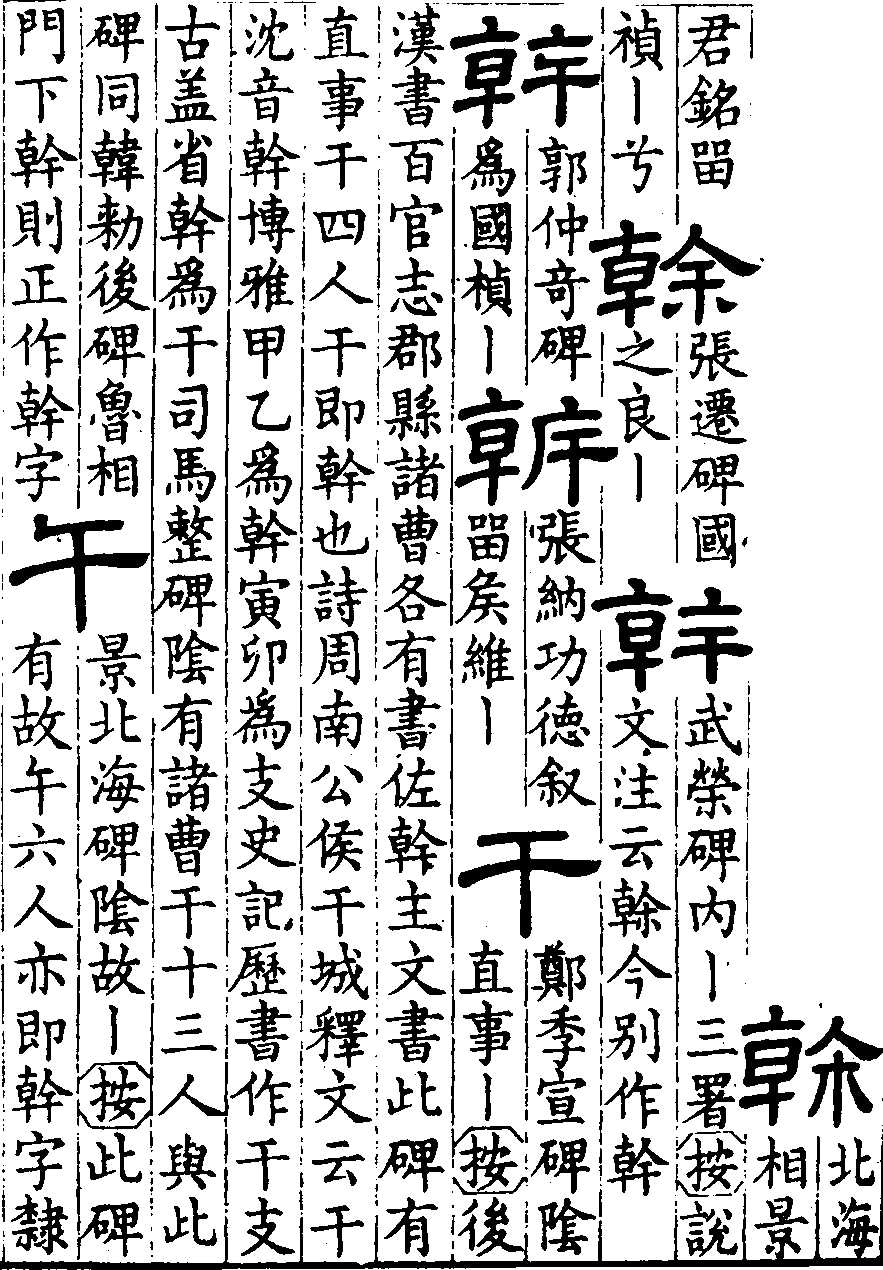 榦
北海
相景
君銘畱
禎丨兮
榦
張遷碑國
之良丨
幹
武榮碑内丨三署按說
文注云榦今別作幹
幹
郭仲奇碑
爲國楨丨
幹
張納功德叙
畱矦維丨
干
鄭季宣碑陰
直事丨按後
漢書百官志郡縣諸曹各有書佐幹主文書此碑有
直事干四人干即幹也詩周南公侯干城釋文云干
沈音幹博雅甲乙爲幹寅卯爲支史記歷書作干支
古盖省幹爲干司馬整碑陰有諸曹干十三人與此
碑同韓勑後碑魯相
門下幹則正作幹字
午
景北海碑陰故丨按此碑
有故午六人亦即幹字隸